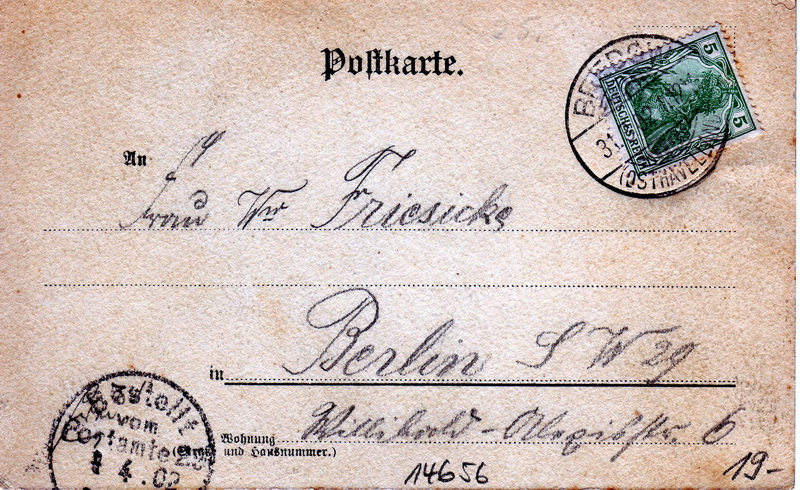 Postkarte.
5 5
DEUTSCHES REICH
31
(OSTHAVELL
An
Frau Ww Friesicke
in Berlin SW 29
Wohnung Willibald-Alexisstr. 6
(Straße und Hausnummer.)
Bestellt
vom
Postamte 29
1 4.02
14656
19-